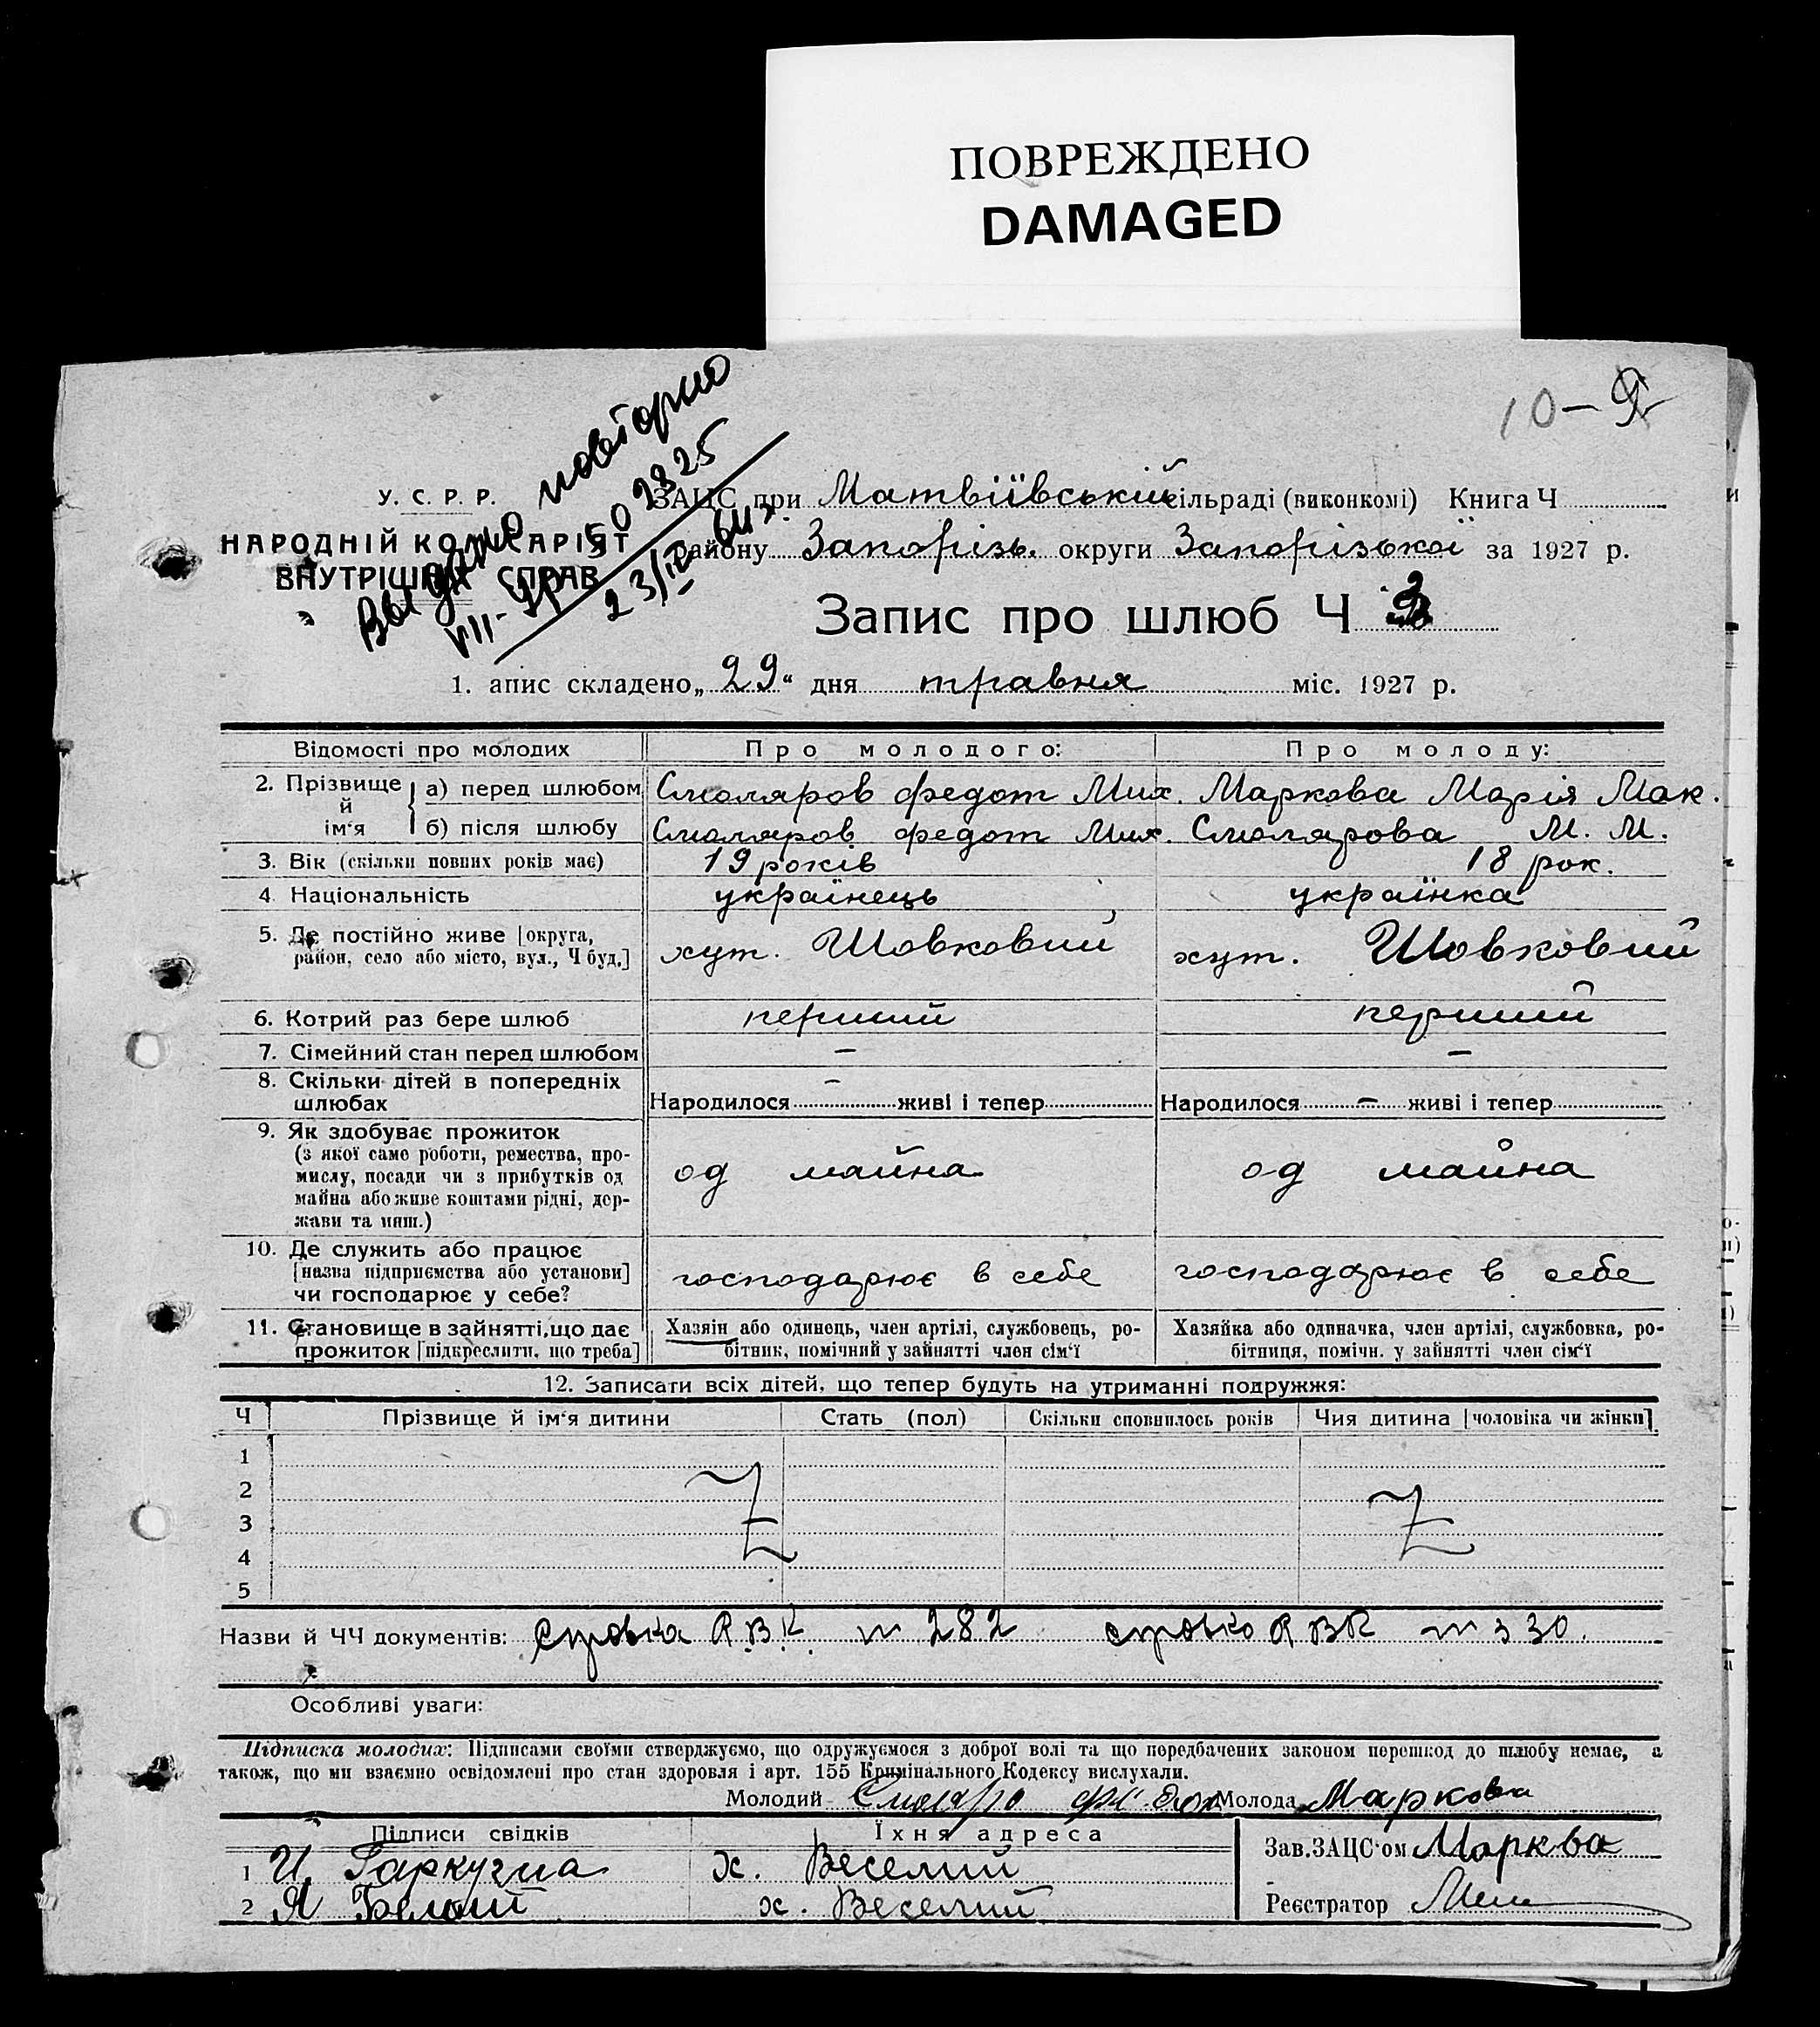 ПОВРЕЖДЕНО
DAMAGED
10 — 9
Выдано повторно
VII-ЯР 50 2825
23/IV
У. С. Р. Р.
НАРОДНІЙ КОМІСАРІЯТ
ВНУТРІШНІХ СПРАВ
ЗАЦС при Матвіївській сільраді (виконкомі) Книга Ч
району Запорізь. округи Запорізької за 1927 р.
Запис про шлюб Ч 3
1. апис складено „29“ дня травня міс. 1927 р.
Відомості про молодих Про молодого: Про молоду:
2. Прізвище й ім‘я а) перед шлюбом Смоляров Федот Мих. Маркова Марія Мак.
б) після шлюбу Смоляров Федот Мих. Смолярова М. М.
3. Вік (скільки повних років має) 19 років 18 рок.
4. Національність українець українка
5. Де постійно живе [округа,
район, село або місто, вул., Ч буд.] хут. Шовковий хут. Шовковий
6. Котрий раз бере шлюб перший перший
7. Сімейний стан перед шлюбом — —
8. Скільки дітей в попередніх
шлюбах Народилося — живі і тепер Народилося — живі і тепер
9. Як здобуває прожиток
(з якої саме роботи, ремества, про-
мислу, посади чи з прибутків од
майна або живе коштами рідні, дер-
жави та инш.) од майна од майна
10. Де служить або працює
[назва підприємства або установи]
чи господарює у себе? господарює в себе господарює в себе
11. Становище в зайнятті, що дає
прожиток [підкреслити, що треба]
Хазяїн або одинець, член артілі, службовець, ро-
бітник, помічний у зайнятті член сім‘ї
Хазяйка або одиначка, член артілі, службовка, ро-
бітниця, помічн. у зайнятті член сім‘ї
12. Записати всіх дітей, що тепер будуть на утриманні подружжя:
Ч Прізвище й ім‘я дитини Стать (пол) Скільки сповнилось років Чия дитина [чоловіка чи жінки]
1
2
3
4
5
Назви й ЧЧ документів: справка Р.В.К. № 282 справка Р В К № 330.
Особливі уваги:
Підписка молодих: Підписами своїми стверджуємо, що одружуємося з доброї волі та що передбачених законом перешкод до шлюбу немає, а
також, що ми взаємно освідомлені про стан здоровля і арт. 155 Кримінального Кодексу вислухали.
Молодий Смоляро Молода Маркова
Підписи свідків Їхня адреса
1 И. Гаркуша х. Веселий
2 Я Белый х. Веселий
Зав. ЗАЦС‘ом Марква
Реєстратор